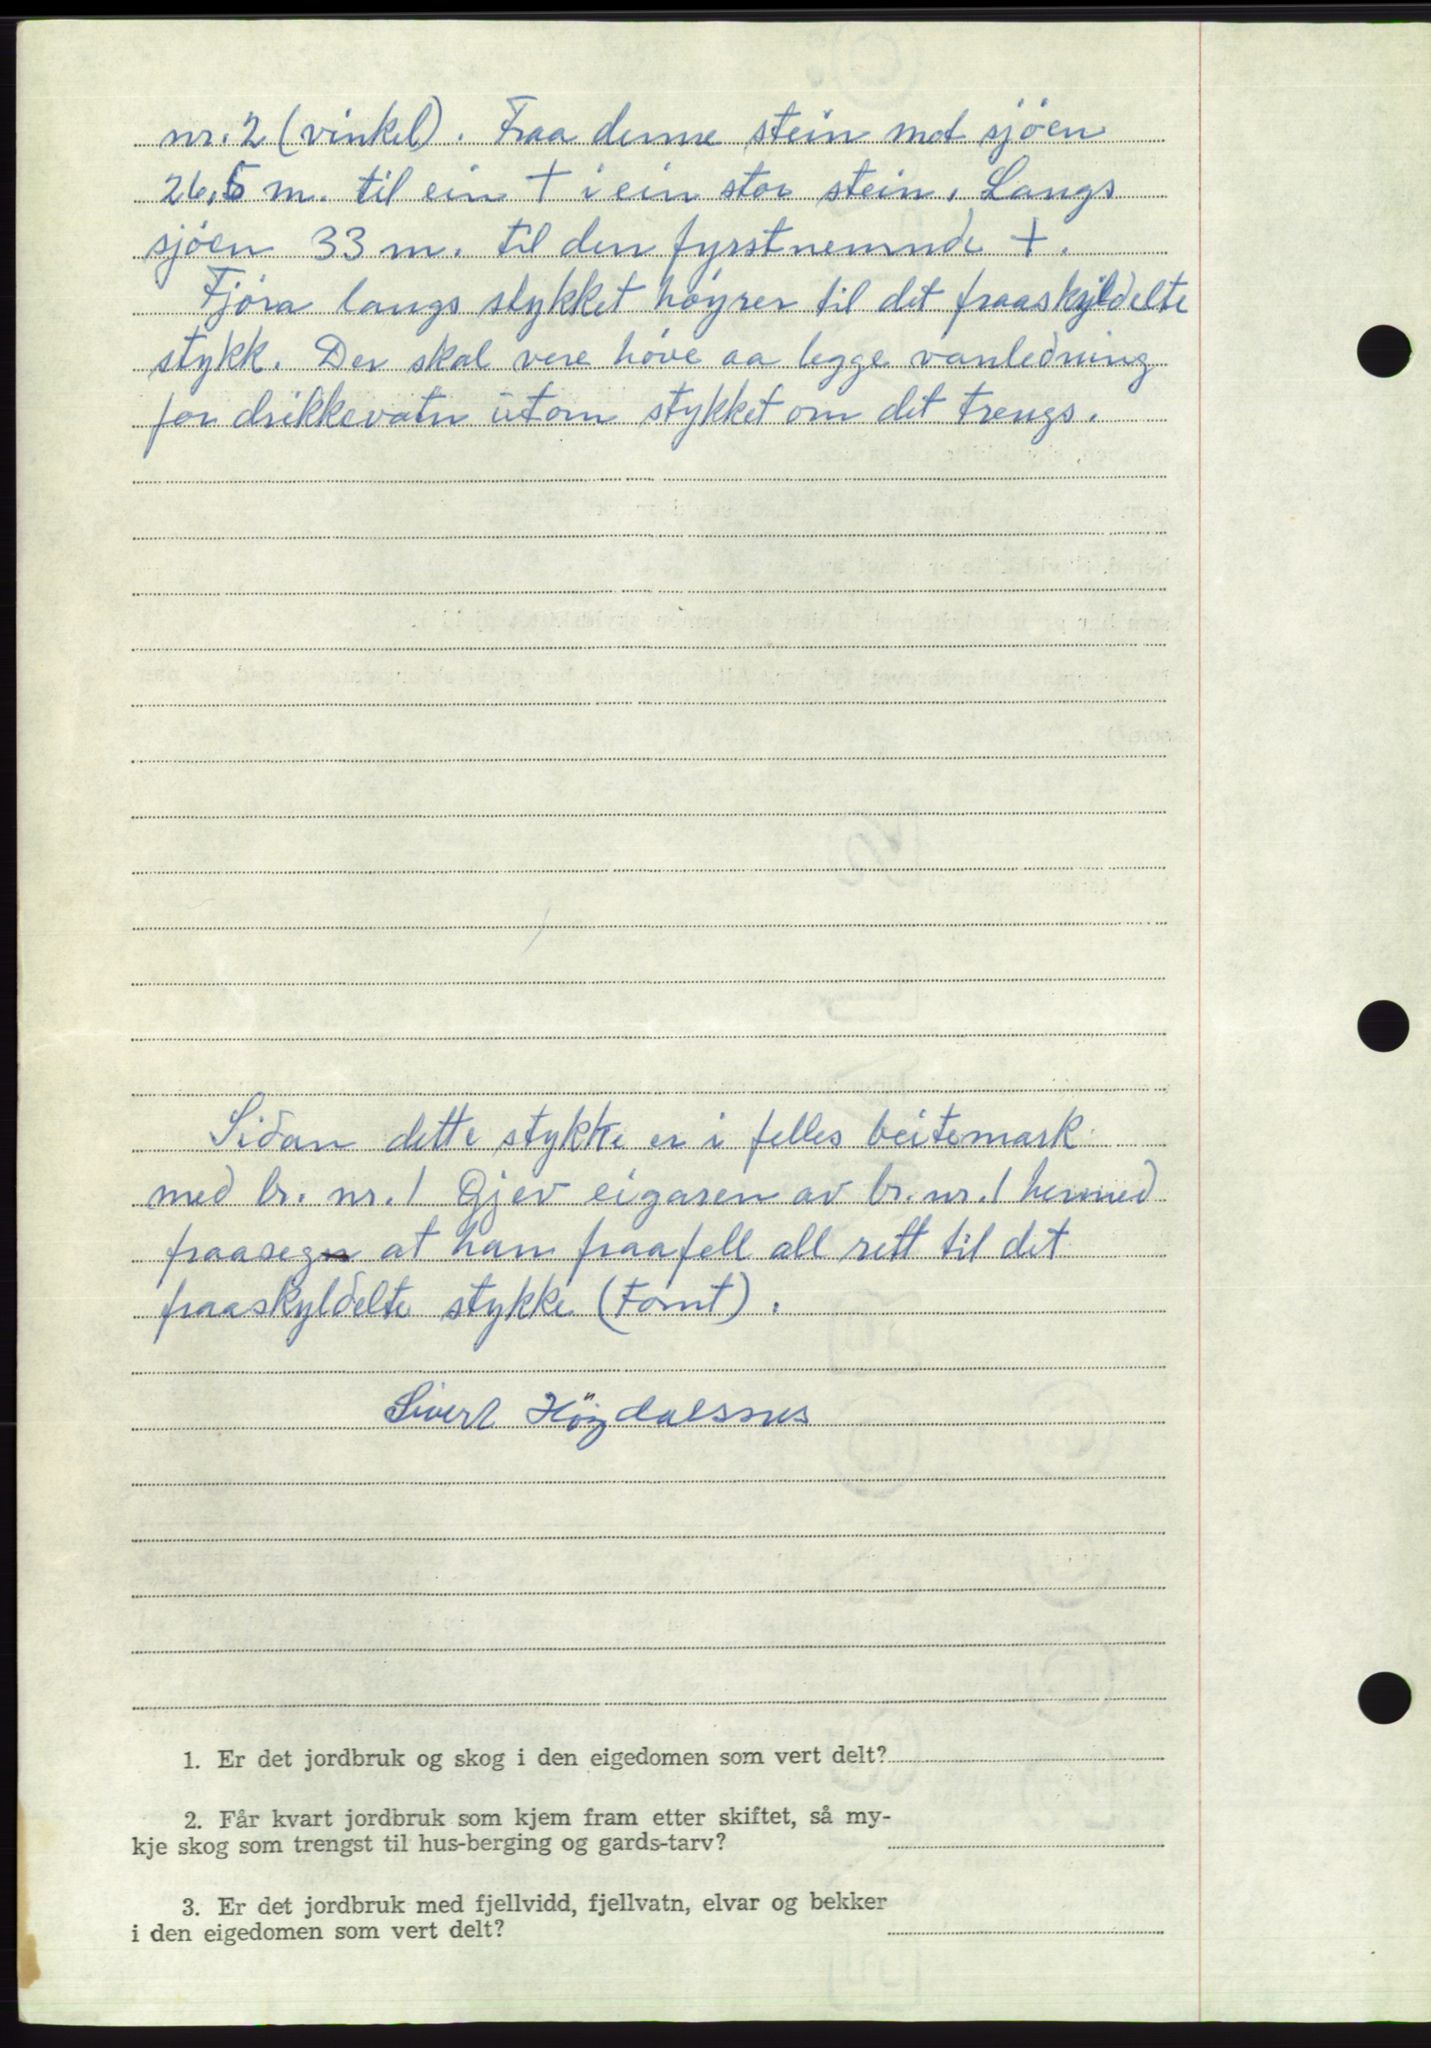 nr. 2 (vinkel). Fraa denne stein mot sjøen
26,5 m. til ein + i ein stor stein. Langs
sjøen 33 m. til den fyrstnemnde +.
Fjøra langs stykket høyrer til det fraaskyldelte
stykk. Der skal vere høve aa legge vanledning
for drikkevatn utom stykket om det trengs.
Sidan dette stykke er i felles beitemark
med br. nr. 1 Gjev eigaren av br. nr. 1 hermed
fraasegn at han fraafell all rett til det
fraaskyldelte stykke (Tomt).
Sivert Høydalsnes
1. Er det jordbruk og skog i den eigedomen som vert delt?
2. Får kvart jordbruk som kjem fram etter skiftet, så my-
kje skog som trengst til hus-berging og gards-tarv?
3. Er det jordbruk med fjellvidd, fjellvatn, elvar og bekker
i den eigedomen som vert delt?